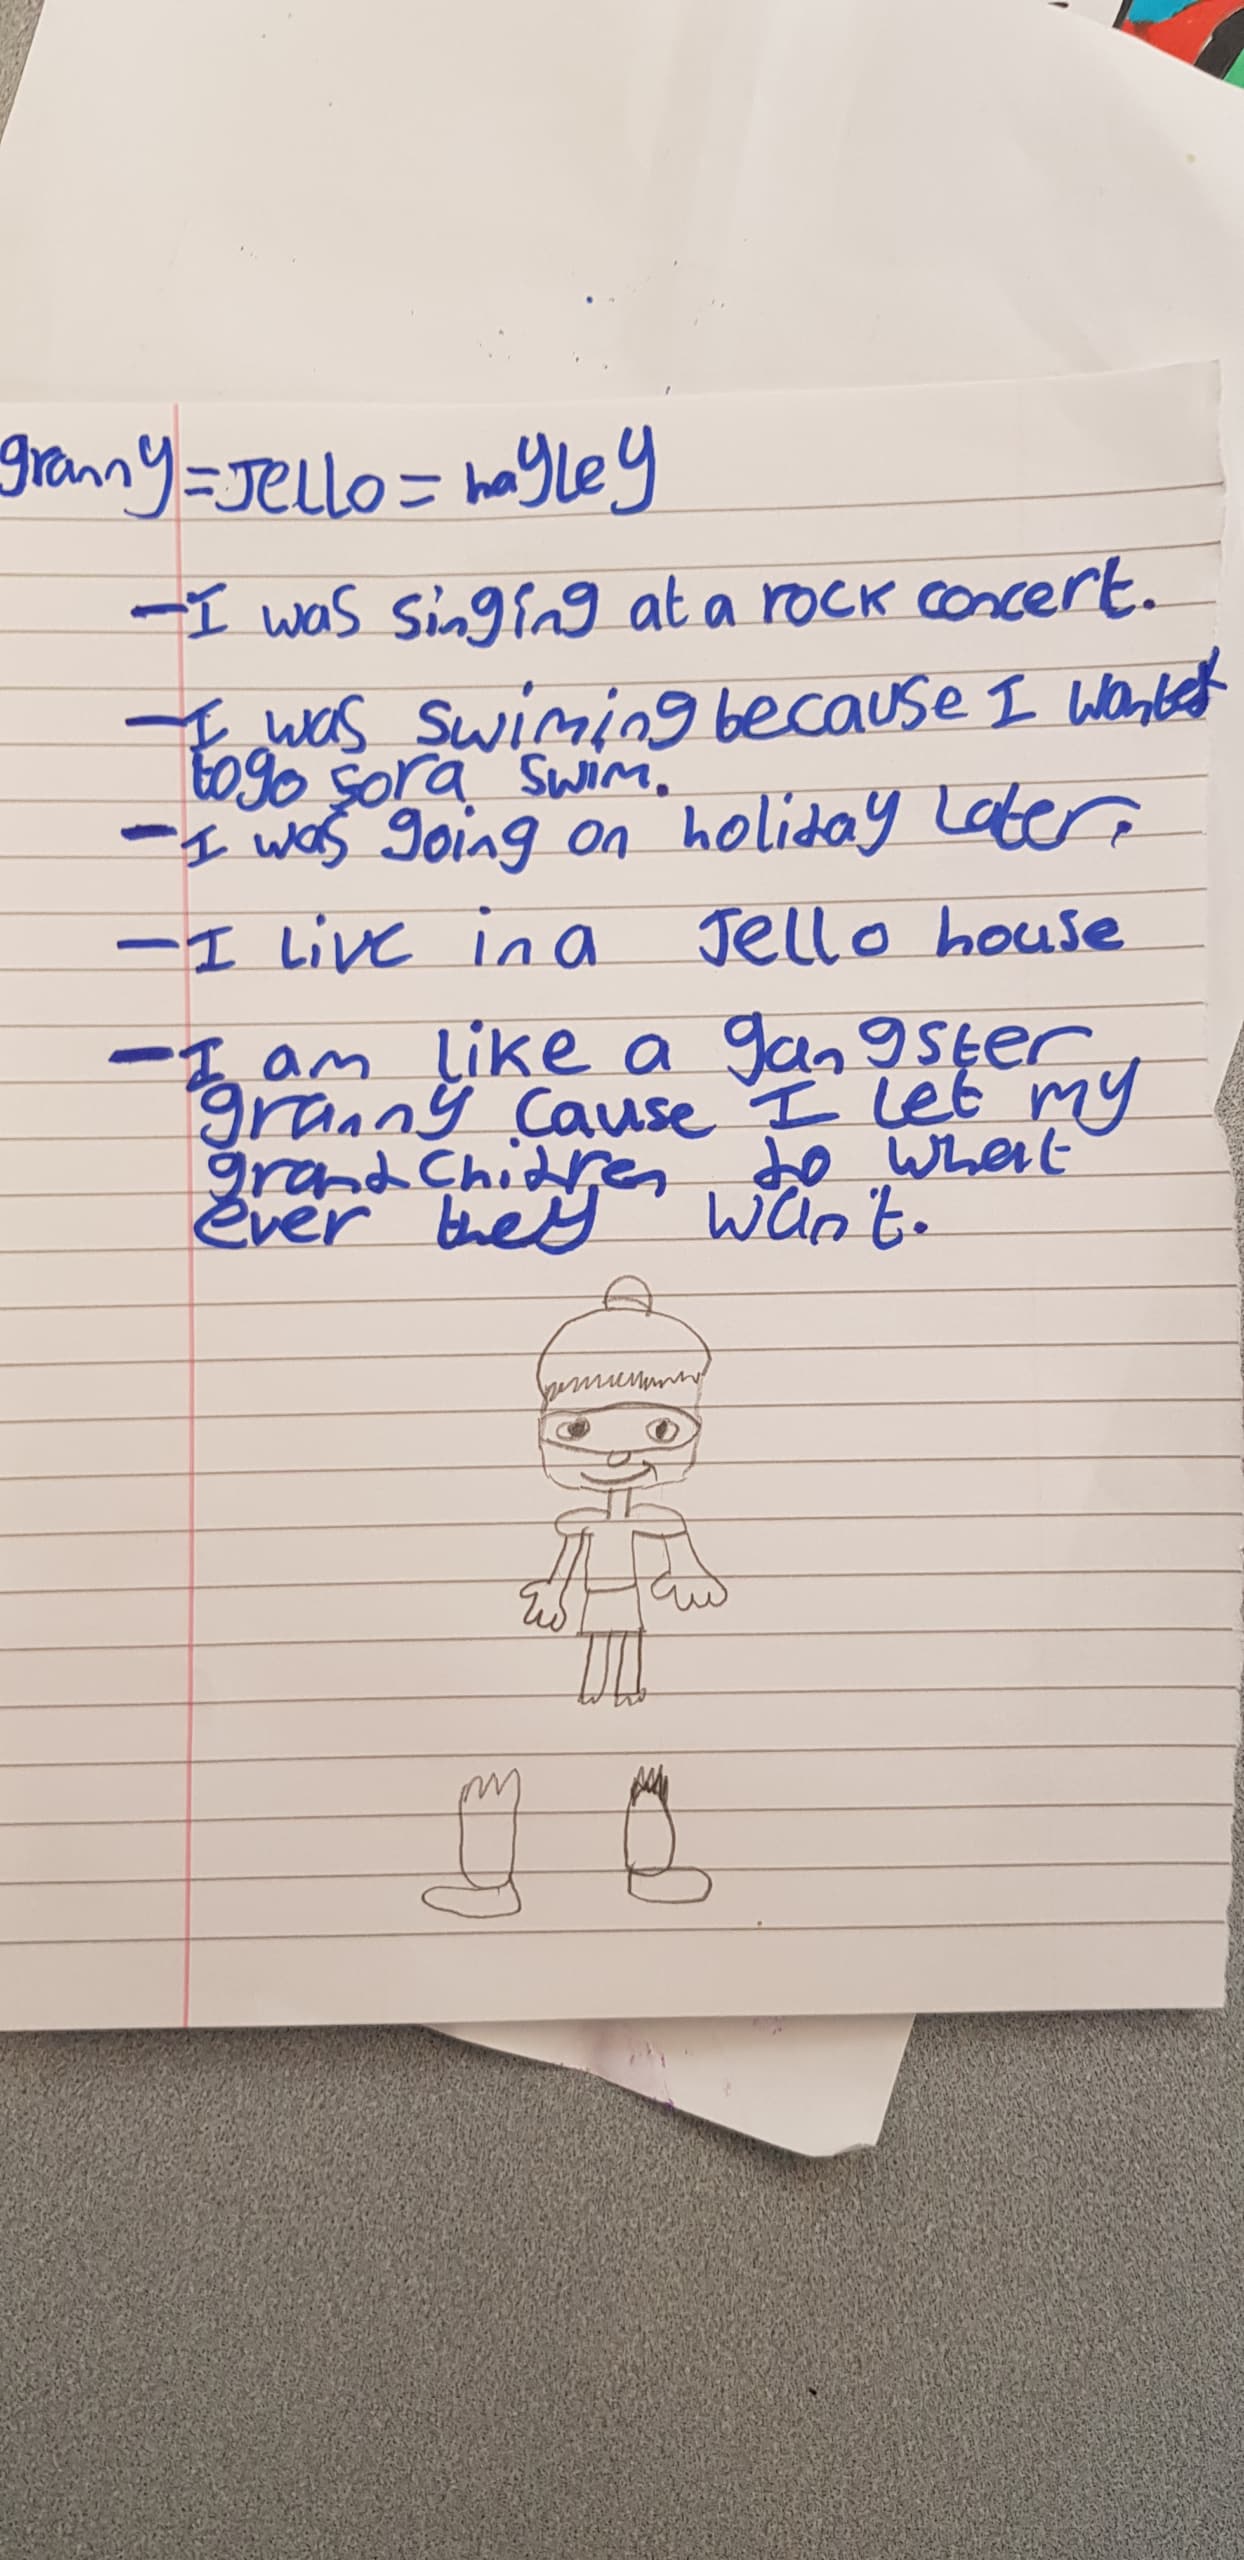 granny=Jello=hayley
-I was singing at a rock concert.
-I was swiming because I wanted
to go for a swim.
-I was going on holiday later.
-I live in a Jello house
-I am like a gangster
granny cause I let my
grandchidren do what
ever they want.